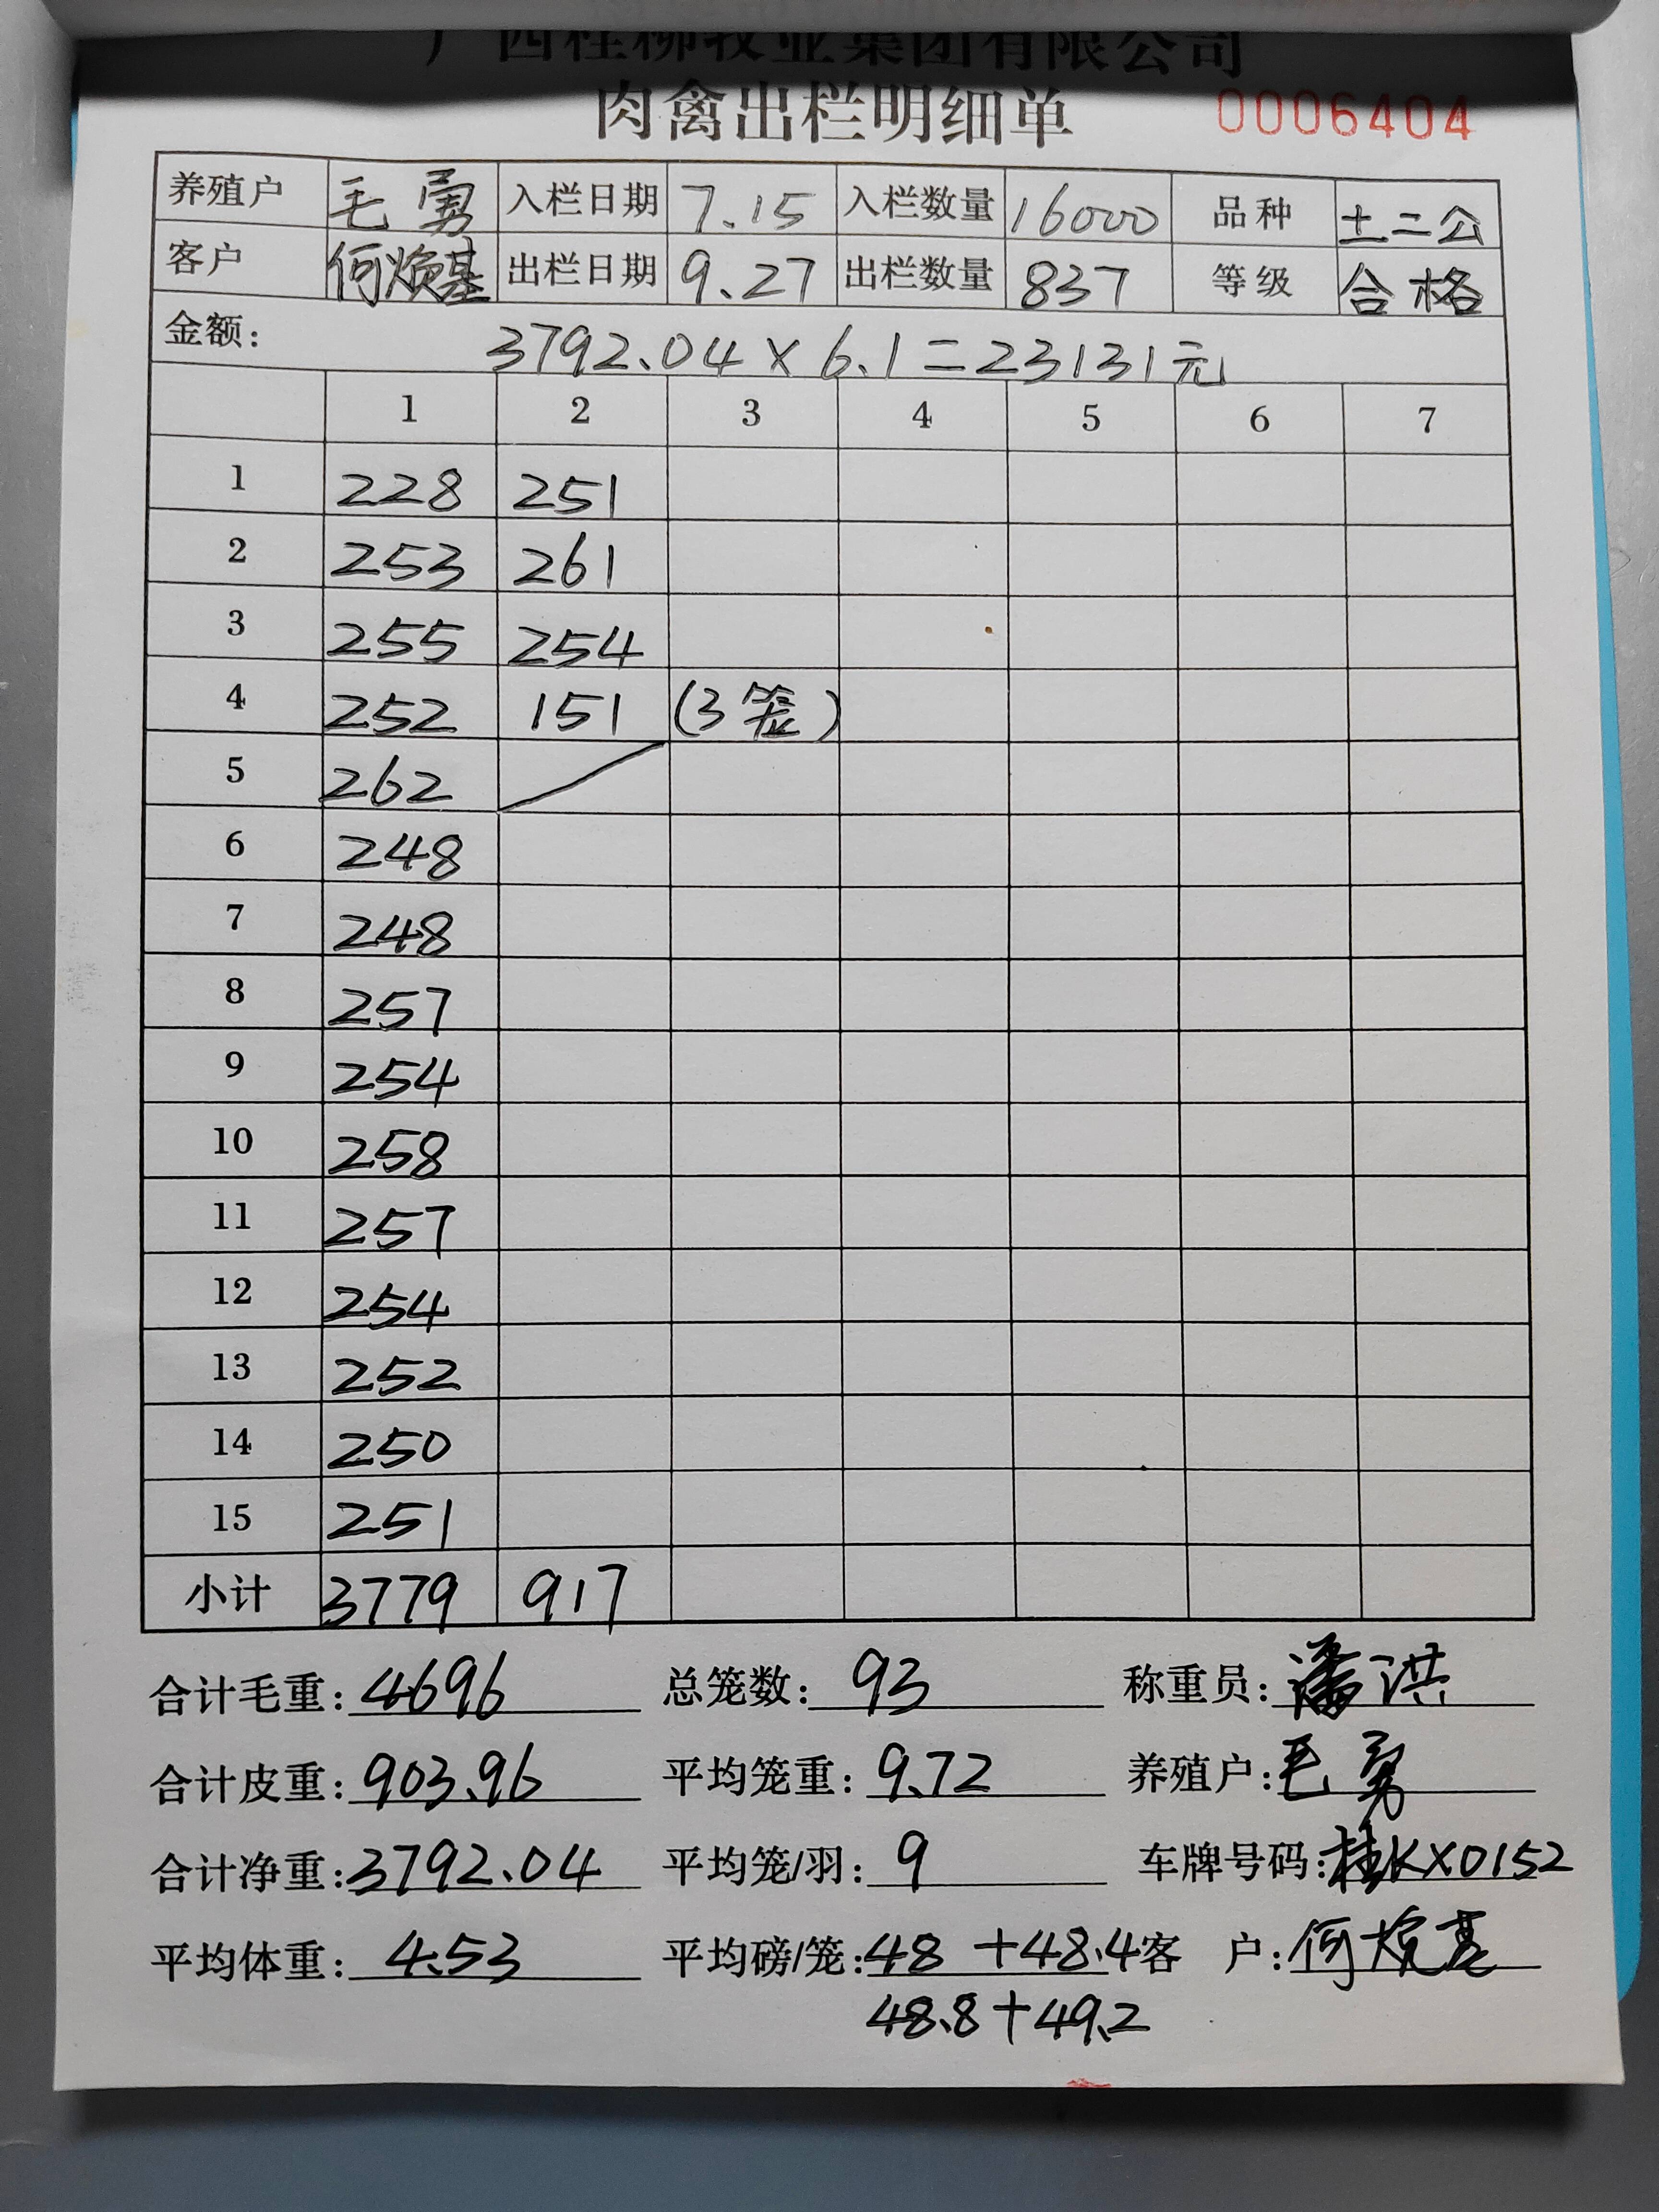 广西桂柳牧业集团有限公司
肉禽出栏明细单 0006404
养殖户 毛勇 入栏日期 7.15 入栏数量 16000 品种 土二公
客户 何焕基 出栏日期 9.27 出栏数量 837 等级 合格
金额: 3792.04×6.1=23131元
1 2 3 4 5 6 7
1 228 251
2 253 261
3 255 254
4 252 151 (3笼)
5 262
6 248
7 248
8 257
9 254
10 258
11 257
12 254
13 252
14 250
15 251
小计 3779 917
合计毛重: 4696 总笼数: 93 称重员: 潘洪
合计皮重: 903.96 平均笼重: 9.72 养殖户: 毛勇
合计净重: 3792.04 平均笼/羽: 9 车牌号码: 桂KX0152
平均体重: 4.53 平均磅/笼: 48+48.4 客户: 何焕基
48.8+49.2